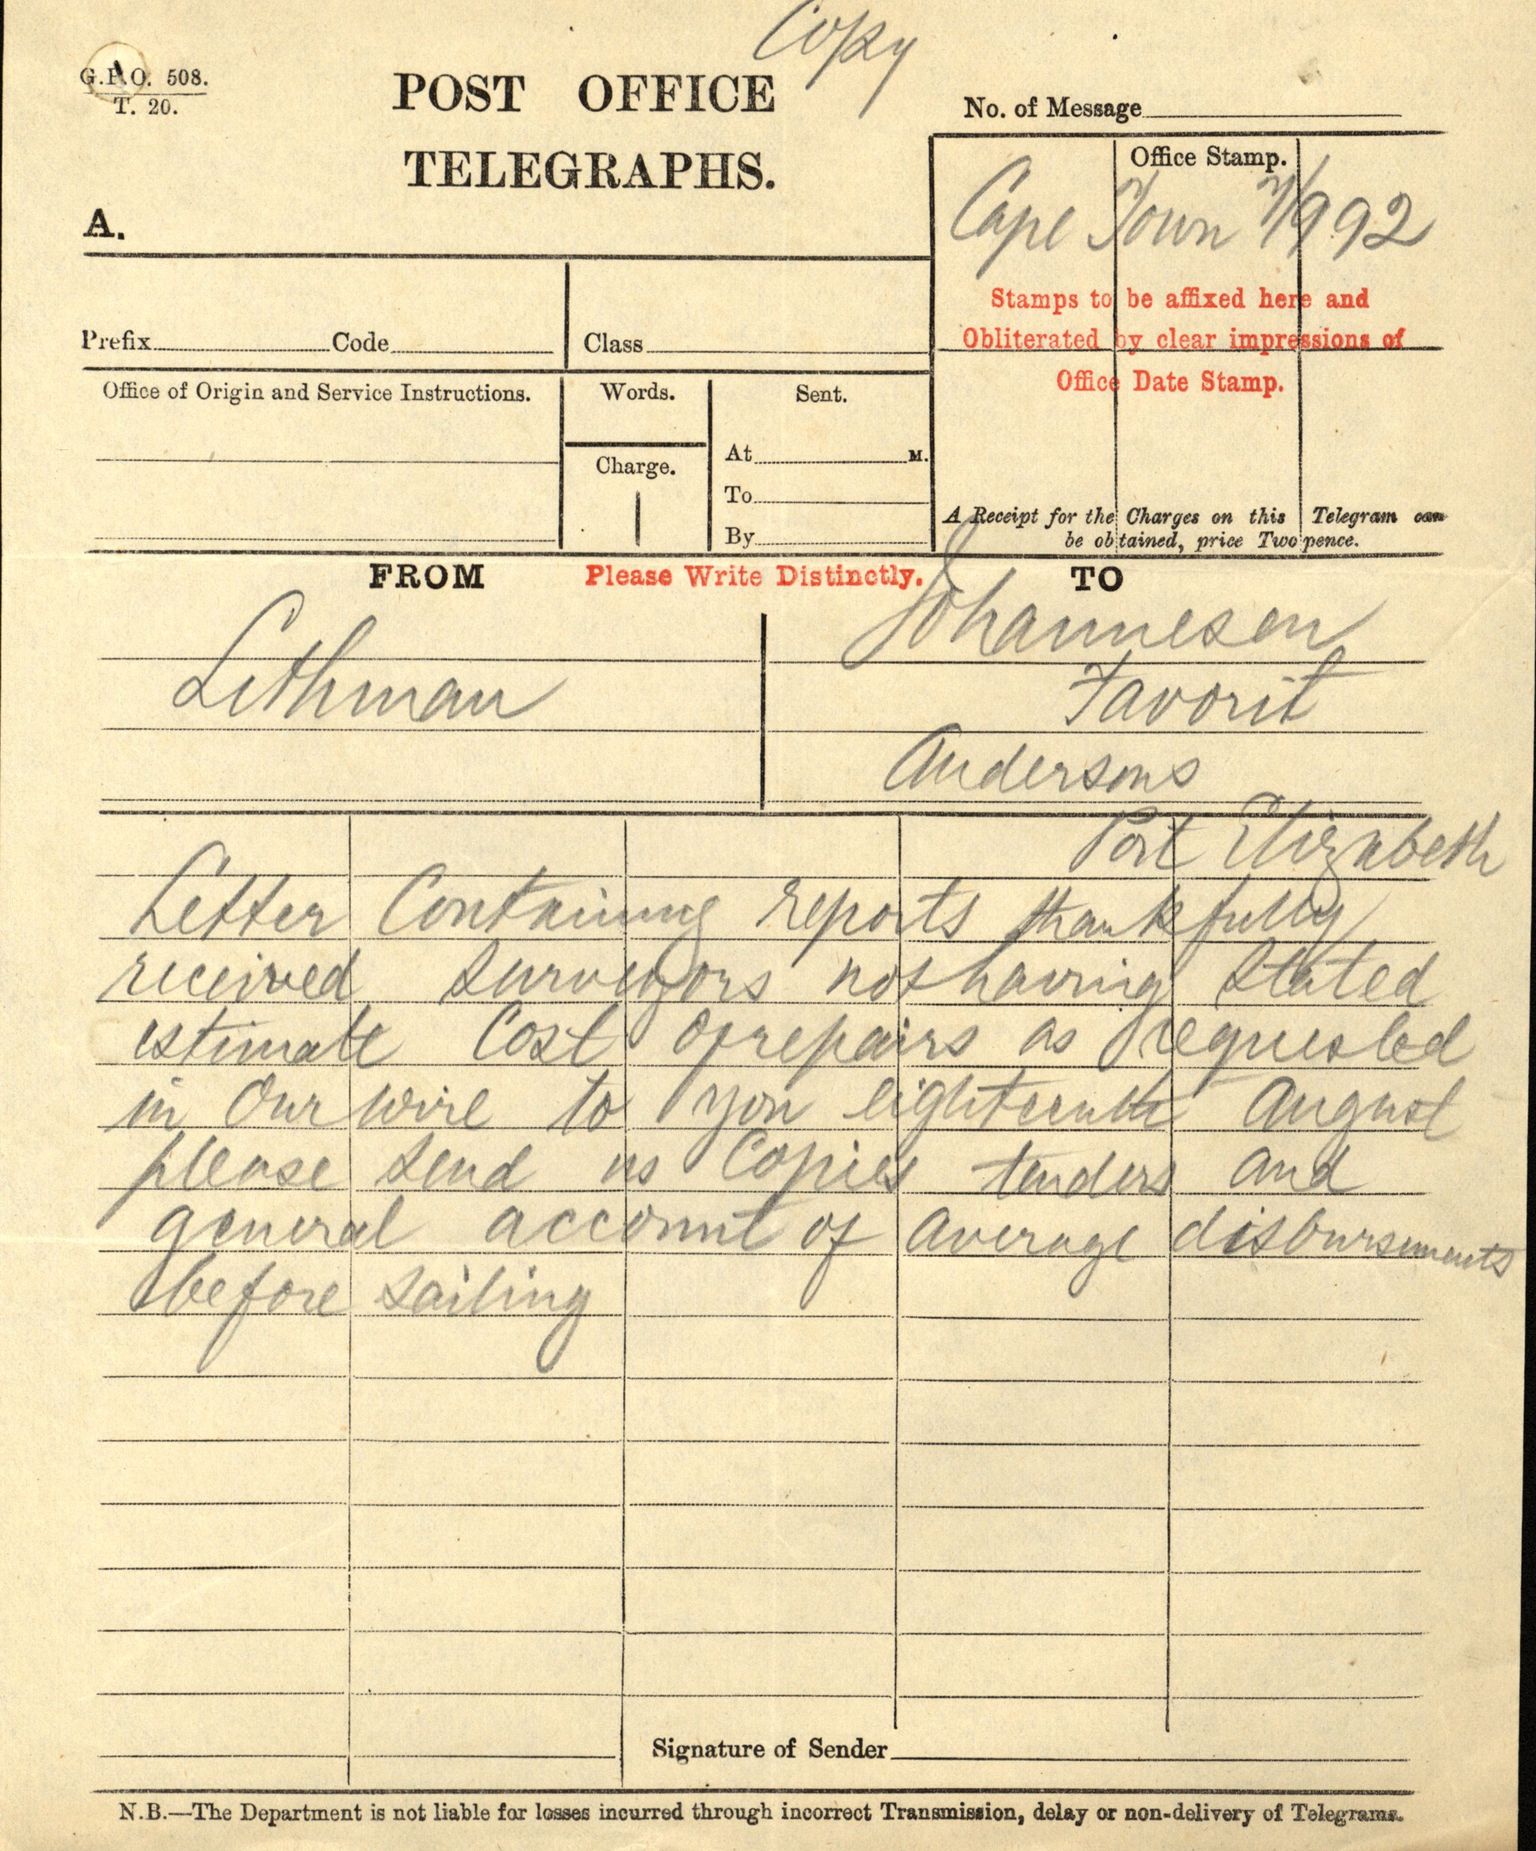 Copy
G.P.O. 508.
T. 20.
POST OFFICE
TELEGRAPHS.
A.
No. of Message
Office Stamp.
Cape Town 7/9 92
Stamps to be affixed here and
Obliterated by clear impressions of
Office Date Stamp.
A Receipt for the Charges on this Telegram can
be obtained, price Twopence.
Prefix Code Class
Office of Origin and Service Instructions.
Words.
Charge.
Sent.
At M.
To
By
FROM Please Write Distinctly. TO
Lithman
Johannesen
Favorit
Andersons
Port Elizabeth
Letter Containing reports thankfully
received surveyors not having stated
estimate Cost of repairs as requested
in Our wire to you eighteenth August
please send us Copies tenders and
general account of average disbursements
before sailing
Signature of Sender
N.B.—The Department is not liable for losses incurred through incorrect Transmission, delay or non-delivery of Telegrams.